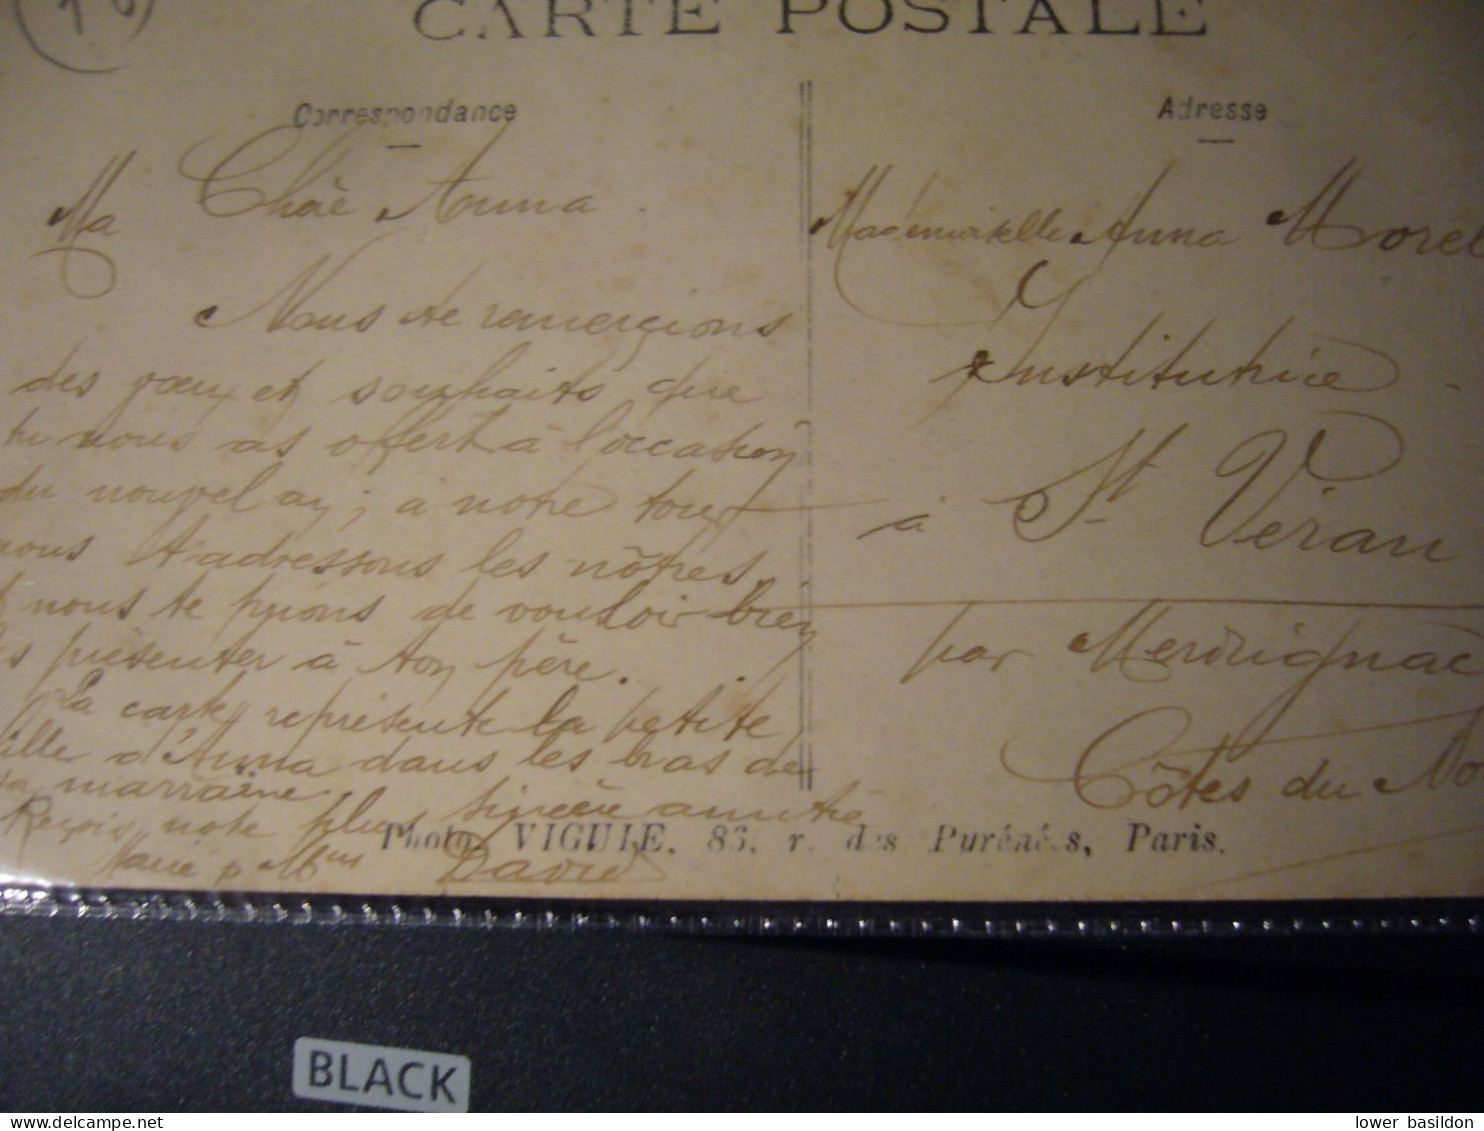 CARTE POSTALE
Correspondance
Ma Chère Anna.
Nous te remerçions
des vœux et souhaits que
tu nous as offert à l'occasion
du nouvel an; à notre tour
nous t'adressons les nôtres,
nous te prions de vouloir bien
présenter à ton père.
La carte représente la petite
fille d'Anna dans les bras de
sa marraine.
Reçois notre plus sincère amitié
Marie David
Adresse
Mademoiselle Anna Morel
Institutrice
à St Véran
par Merdrignac
Côtes du No
Photo. VIGUIE. 83, r. des Purénées, Paris.
BLACK
lower basildon